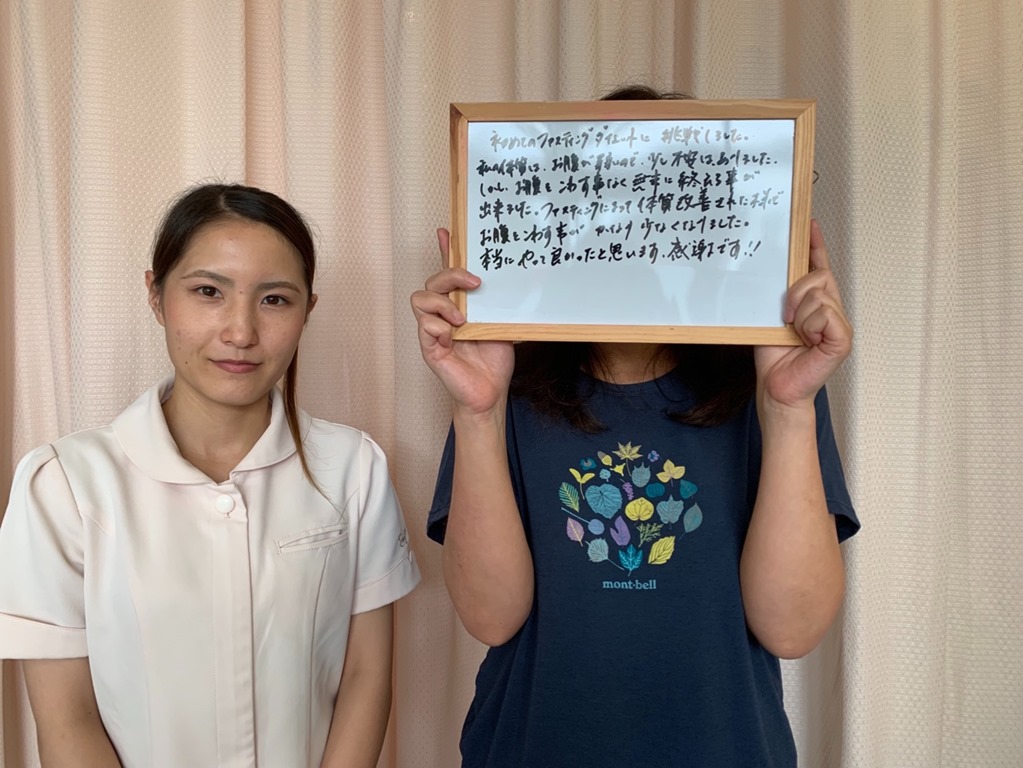 初めてのファスティングダイエットに 挑戦しました。
私の体質は、お腹が弱いので、少し不安はありました。
しかし、お腹をこわす事なく無事に終える事が
出来ました。ファスティングによって体質改善された様で
お腹をこわす事が かなり 少なくなりました。
本当にやって良かったと思います。感謝です!!
mont-bell